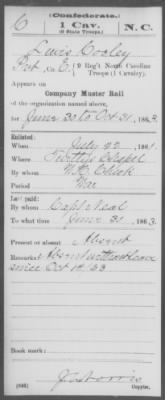 6
(Confederate.)
1 Cav.
(9 State Troops.)
N. C.
Lewis Cooley
Pvt, Co. E, 9 Reg't North Carolina
Troops (1 Cavalry).
Appears on
Company Muster Roll
of the organization named above,
for June 30 to Oct 31, 1863.
Enlisted:
When July 22, 1861.
Where
By whom W. H. Cheek
Period War
Last paid:
By whom Capt Neal
To what time June 31, 1863.
Present or absent Absent
Remarks: Absent without leave
since Oct 12 63
Book mark:
(642)
Copyist.